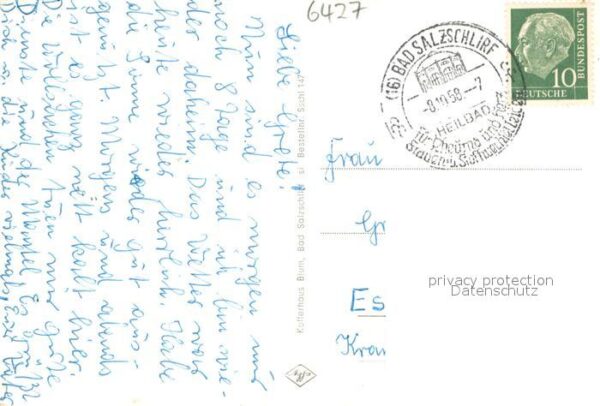 6427
(16) BAD SALZSCHLIRF
-8.10.58.-7
HEILBAD
für Rheuma und Herz
DEUTSCHE
BUNDESPOST
10
Liebe Grete!
Nun sind es morgen nur
noch 8 Tage und ich bin wie-
der daheim. Das Wetter war
heute wieder herrlich. Habe
die Sonne wieder gut aus-
genutzt. Morgens und abends
ist es ganz nett kalt hier.
Die tun mir gute
Dienste
Kofferhaus Blum, Bad Salzschlirf Bestellnr. Sschl 147
Frau
Gr
Es
Kron
privacy protection
Datenschutz